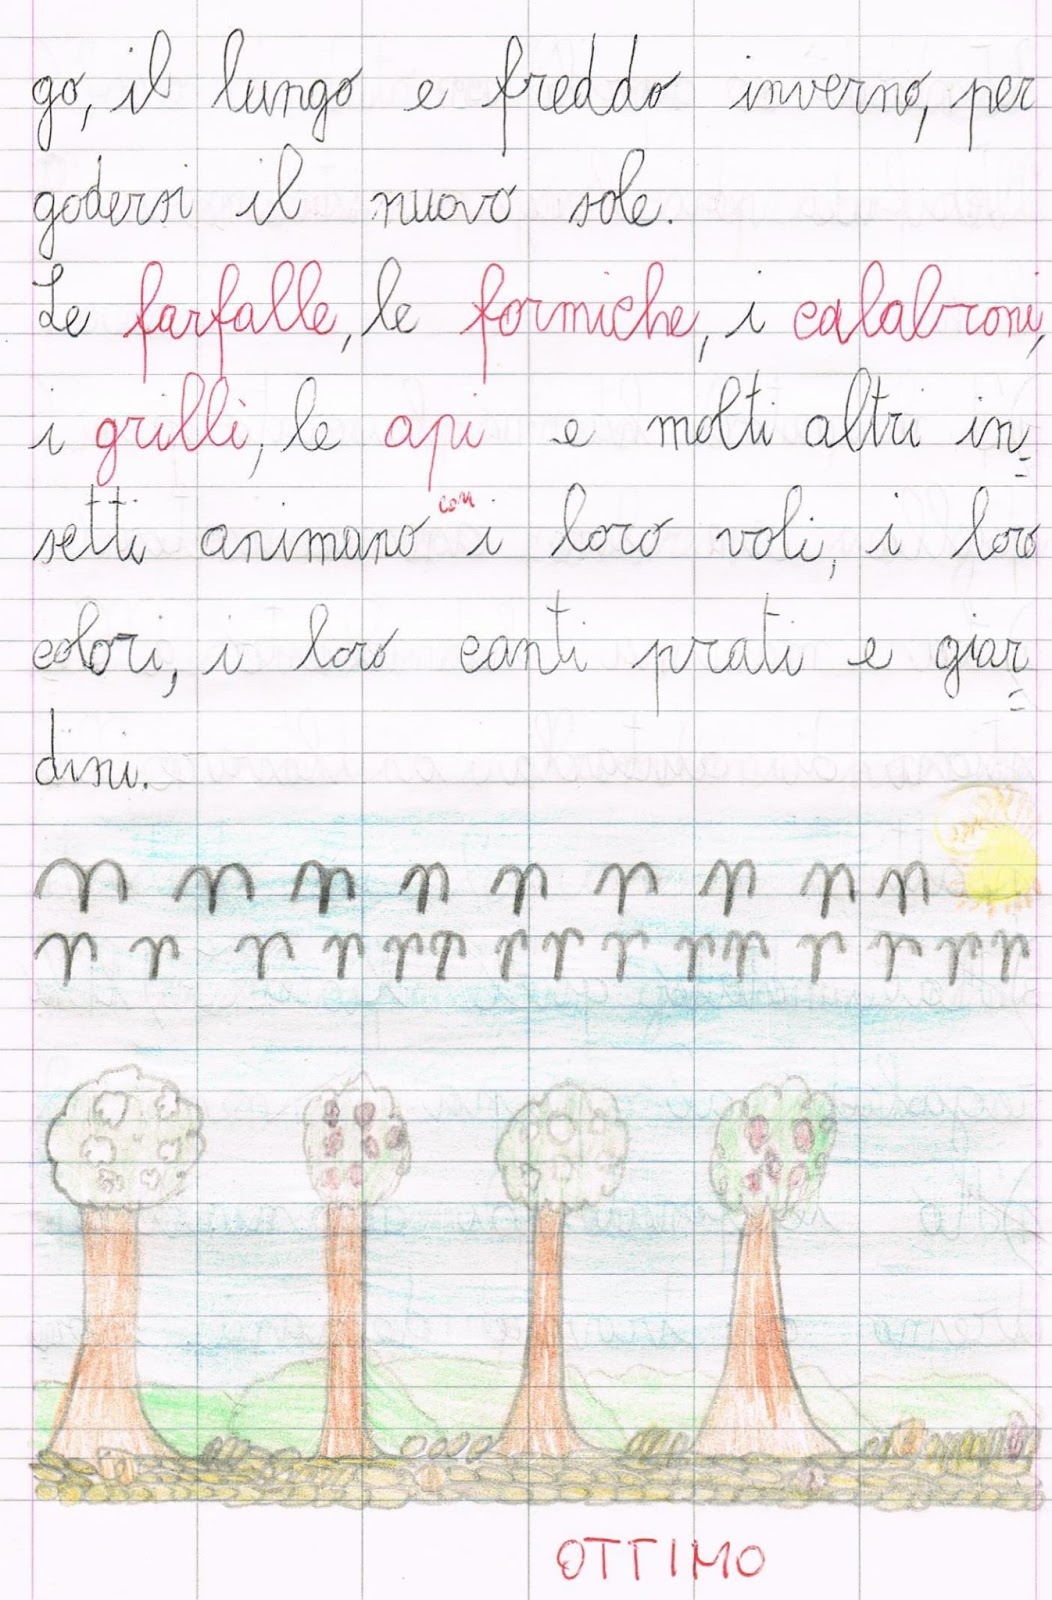 go, il lungo e freddo inverno, per
godersi il nuovo sole.
Le farfalle, le formiche, i calabroni,
i grilli, le api e molti altri in=
con
setti animano i loro voli, i loro
colori, i loro canti prati e giar=
dini.
OTTIMO